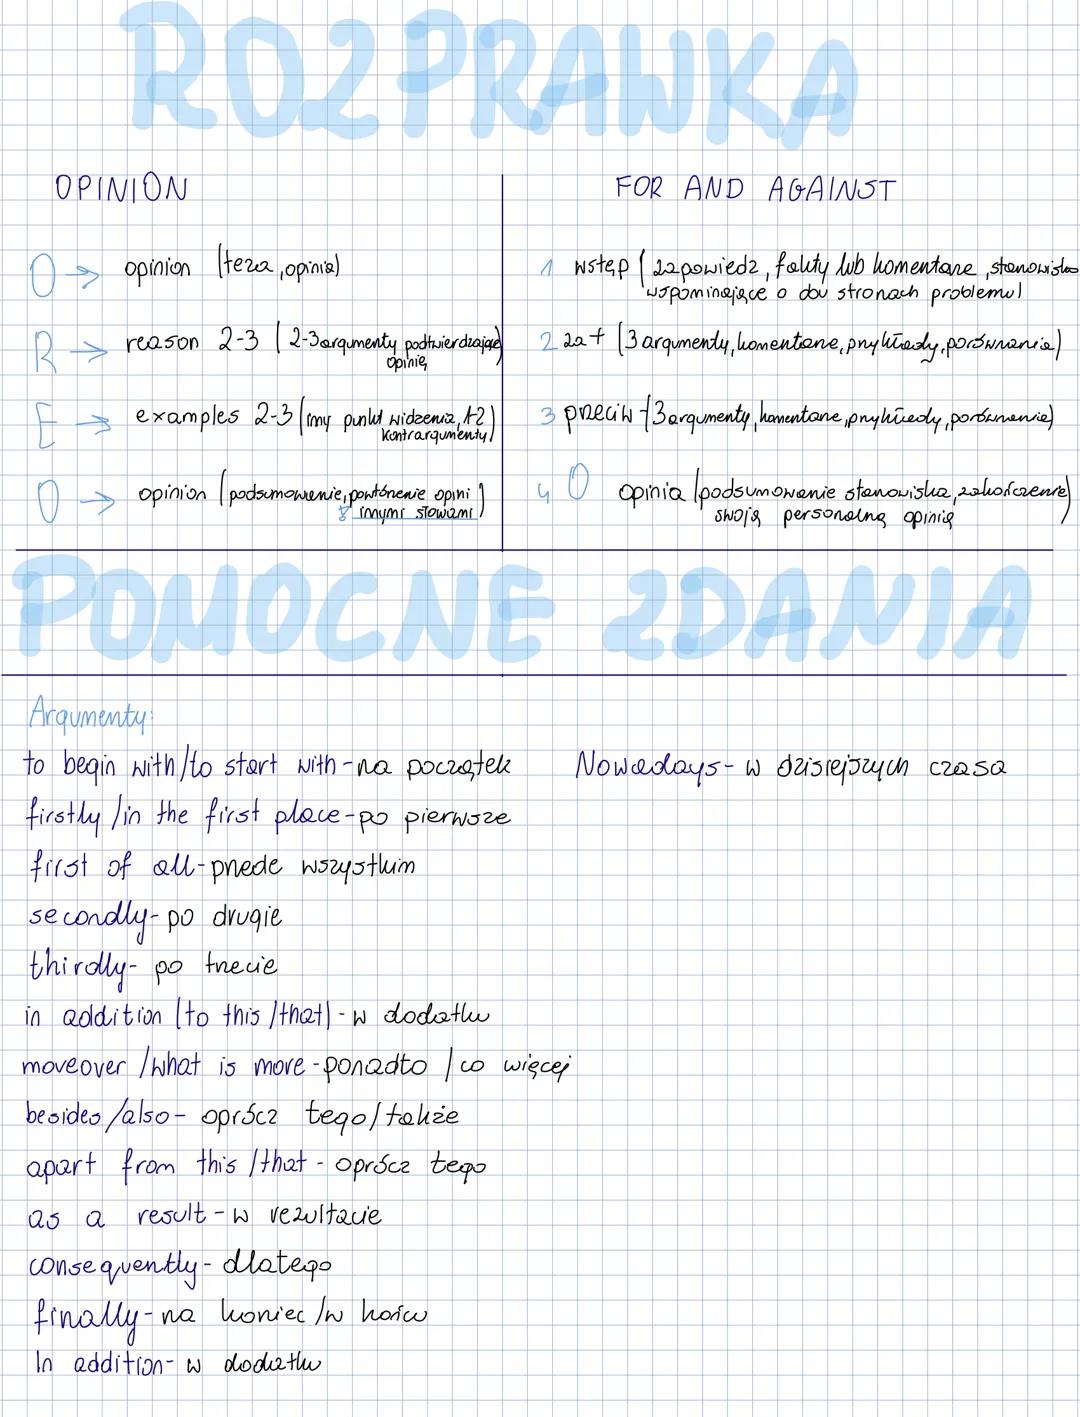 ROZPRAWKA
OPINION
O → opinion (teza, opinia)
R → reason 2-3 (2-3 argumenty podtwierdzające
opinię)
E → examples 2-3 (inny punkt widzenia, 1-2
kontrargumenty)
O → opinion (podsumowanie, powtórzenie opini
innymi słowami)
FOR AND AGAINST
1 wstęp (zapowiedz, fakty lub komentarze, stanowisko
wspominające o dwu stronach problemu)
2 za + (3 argumenty, komentarze, przykłady, porównania)
3 przeciw - (3 argumenty, komentarze, przykłady, porównanie)
4 O opinia (podsumowanie stanowiska, zakończenie)
swoją personalną opinią
POMOCNE ZDANIA
Argumenty:
to begin with/to start with - na początek
firstly/in the first place - po pierwsze
first of all - przede wszystkim
secondly - po drugie
thirdly - po trzecie
in addition (to this/that) - w dodatku
moveover/what is more - ponadto/co więcej
besides/also - oprócz tego/także
apart from this/that - oprócz tego
as a result - w rezultacie
consequently - dlatego
finally - na koniec/w końcu
In addition - w dodatku
Nowadays - w dzisiejszych czasa